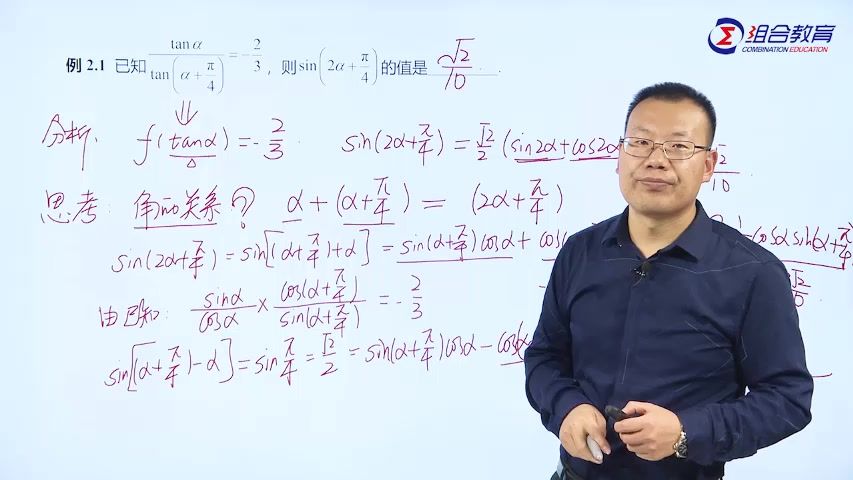 组合教育
COMBINATION EDUCATION
例 2.1 已知 tanα / tan(α + π/4) = -2/3, 则 sin(2α + π/4) 的值是 √2/10.
分析: f(tanα) = -2/3. sin(2α+π/4) = √2/2 (sin2α+cos2α
√2/10.
思考: 角的关系? α + (α+π/4) = (2α+π/4)
sin(2α+π/4) = sin[(α+π/4)+α] = sin(α+π/4)cosα + cos(
= cosα sin(α+π/4
由已知: sinα/cosα × cos(α+π/4)/sin(α+π/4) = -2/3
sin[(α+π/4)-α] = sinπ/4 = √2/2 = sin(α+π/4)cosα - cos(α